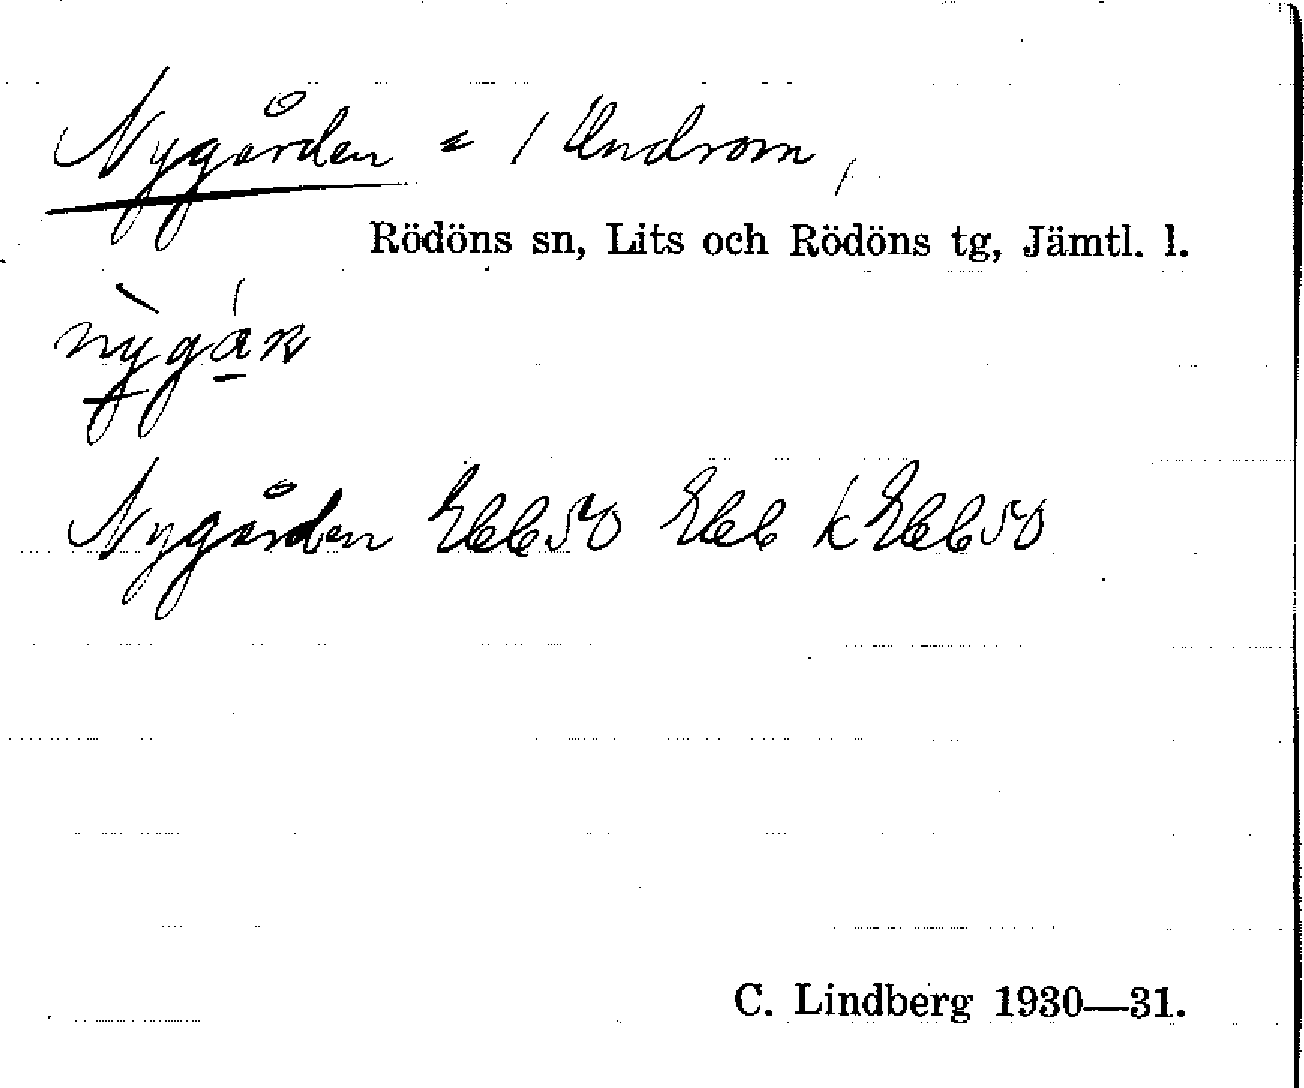 Nygården = 1 Undrom,
Rödöns sn, Lits och Rödöns tg, Jämtl. l.
Nygården Ebb50 Ebb k Ebb50
C. Lindberg 1930—31.